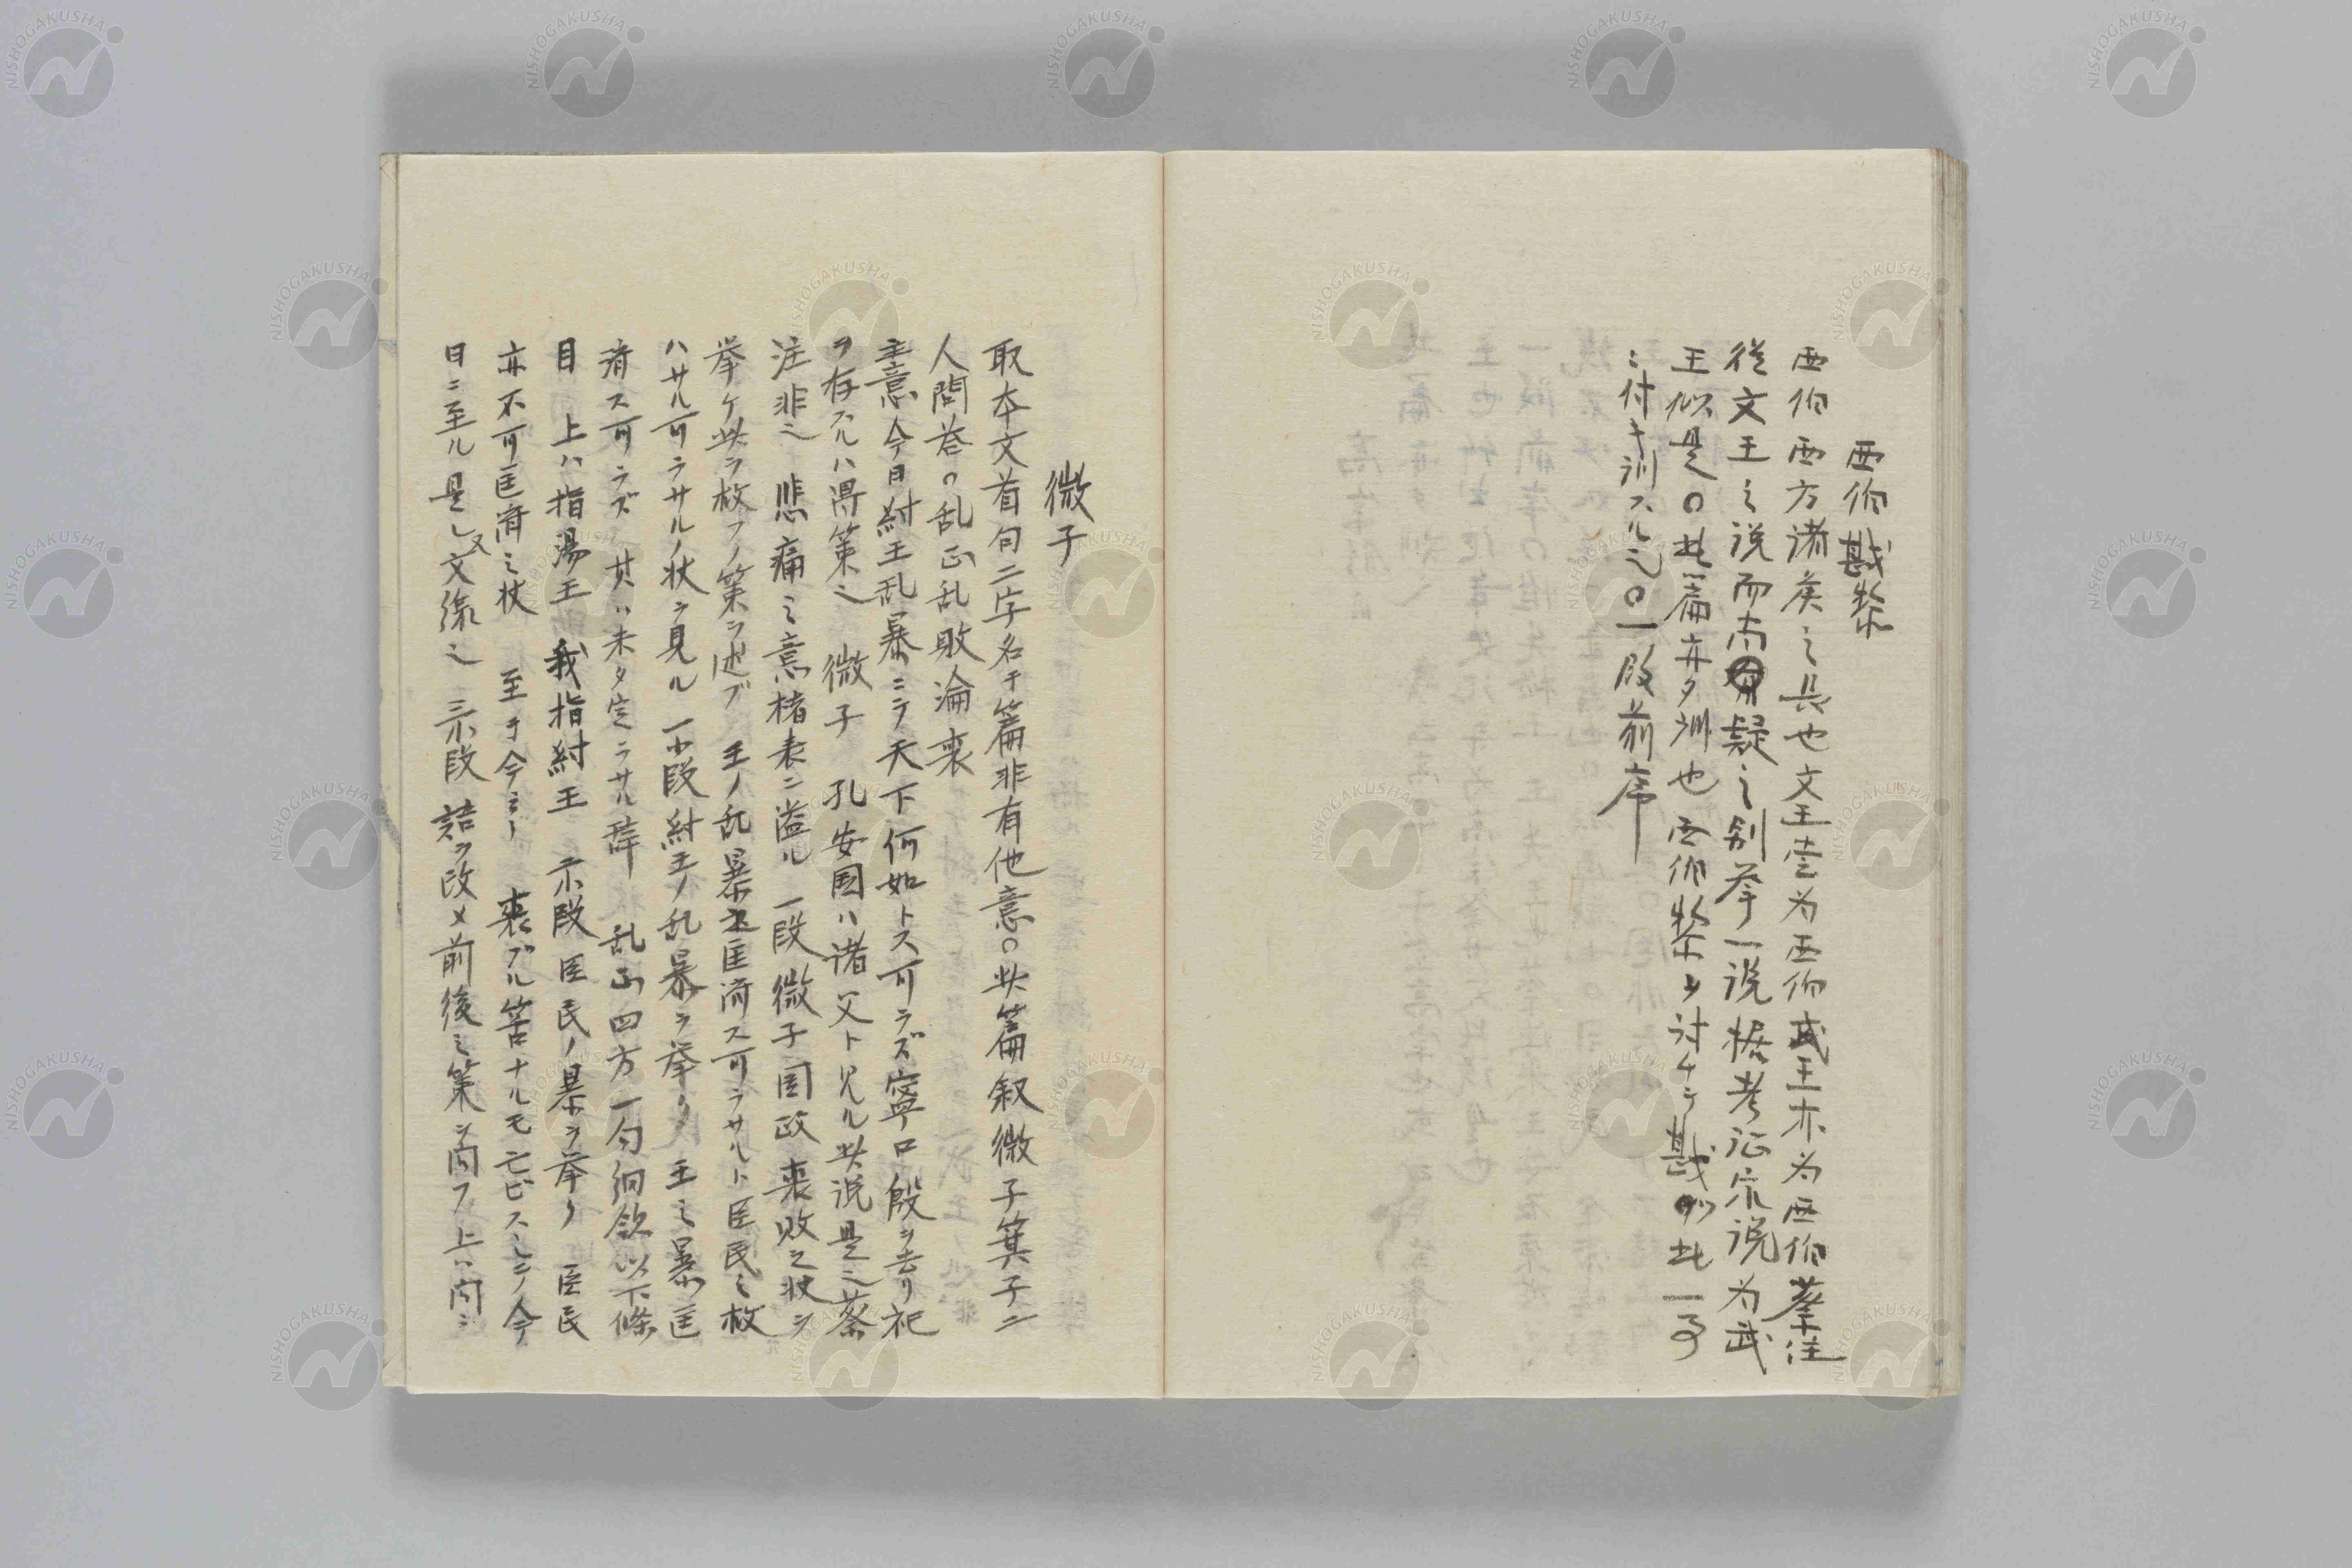 西伯戡黎
西伯西方諸侯之長也文王嘗為西伯武王亦為西伯蔡注
従文王之説而尚疑之別挙一説据考证宗説為武
王似是〇此篇亦タ訓也西伯黎ヲ討チテ戡此一事
ニ付キ訓スル也〇一段前序
微子
取本文首句二字名チ篇非有他意〇此篇叙微子箕子二
人問答〇乱正乱敗淪喪
主意今日紂王乱暴ニテ天下何如トス可ラズ寧ロ殷ヲ去リ祀
ヲ存スルハ得策也 微子 孔安国ハ諸父ト見ル此説是也蔡
注非也 悲痛之意楮表ニ溢ル 一段微子国政喪敗之状ヲ
挙ケ此ヲ救フノ策ヲ述ブ 王ノ乱暴匡済ス可ラサルト臣民之救
ハサル可ラサルノ状ヲ見ル 一小段紂王ノ乱暴ヲ挙ク 王之暴匡
済ス可ラズ 其ハ未タ定ラサル辞 乱正四方一句 以下條
目 上ハ指湯王 我指紂王 二小段臣民ノ暴ヲ挙ク 臣民
亦不可匡済之状 至于今 喪ブル筈ナルモ亡ビス今
日ニ至ル是レ又文縁也 三小段 語ヲ改メ前後之策ヲ商フ上ハ問ニ